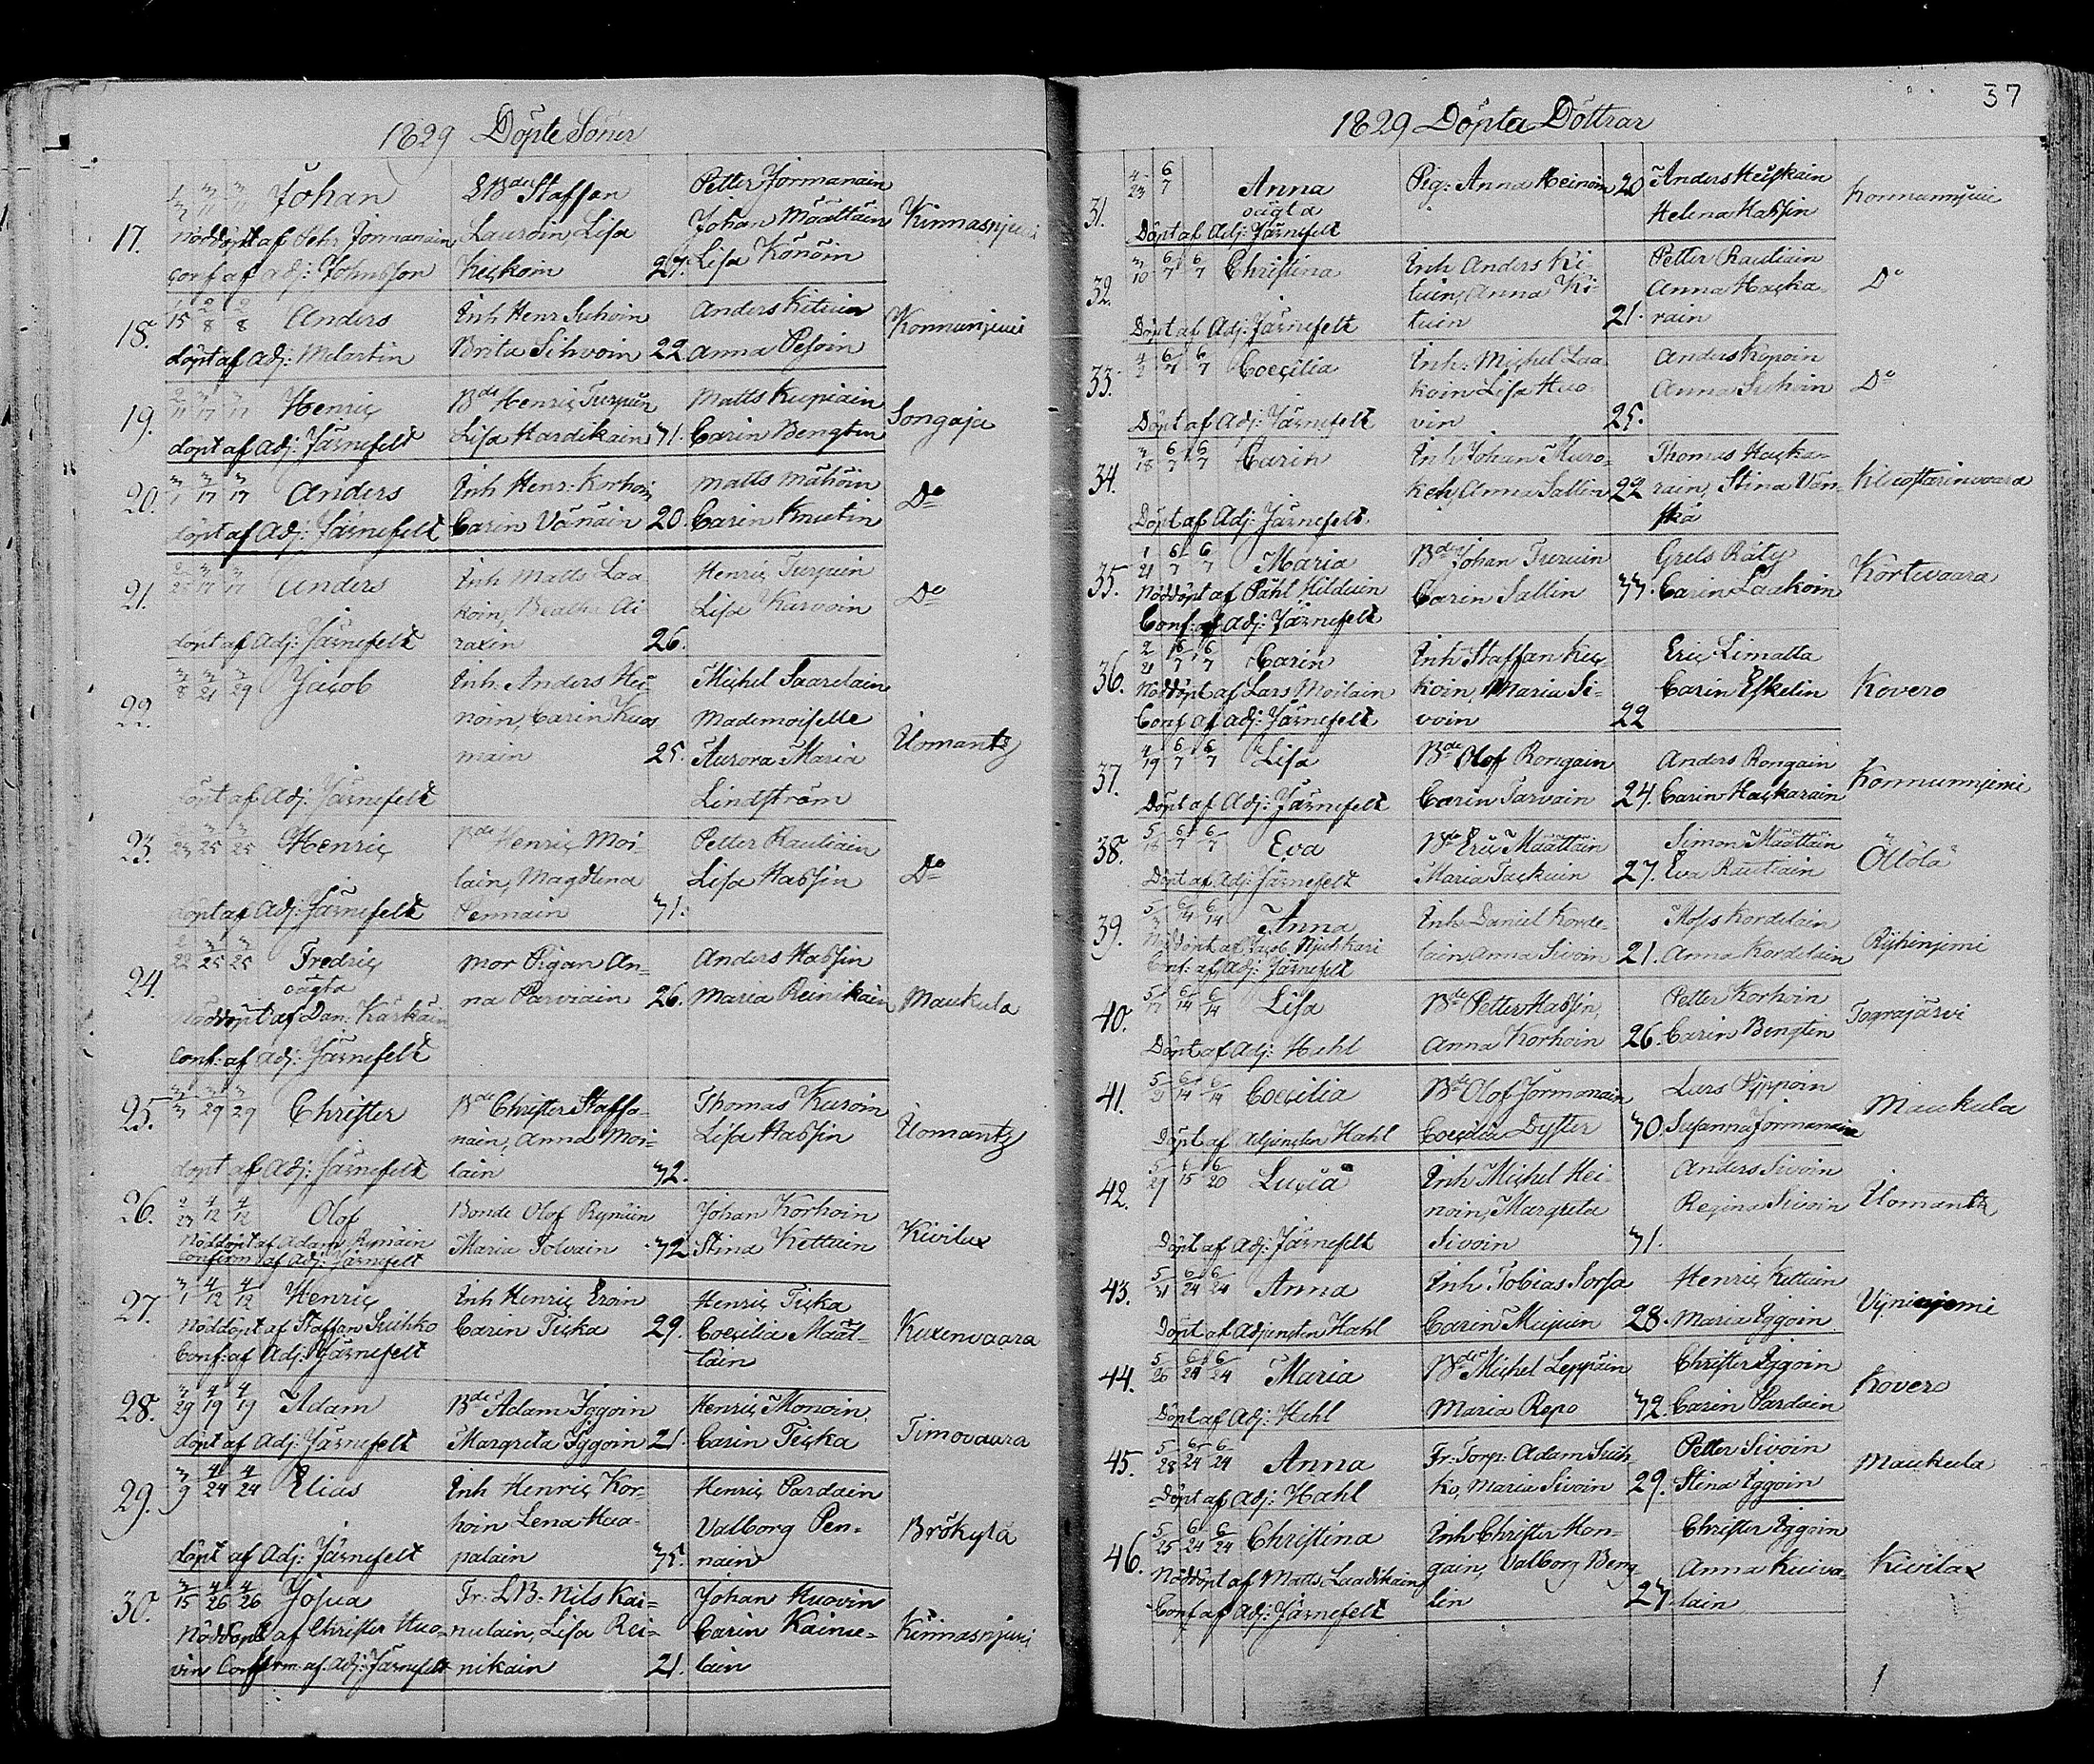 1829 Döpte Söner
17. Johan
Nöddöpt af Pehr Jormanain
conf af adj: Johnsson
LBde Staffan
Lauroin, Lisa
Kickoin 27.
Petter Jormanain
Johan Määttäin
Lisa Könöin
Kinnasnjemi
18. 1/15 2/8 2/8 Anders
döpt af Adj: Molartin
Inh Henr Suhoin
Brita Sihvoin 22.
Anders Kituin
Anna Pesoin
Konnunjemi
19. 2/11 3/17 3/17 Henric
döpt af Adj: Järnefelt
Bde Henric Turpein
Lisa Hardikain 31.
Matts Kupiain
Carin Bengtin
Songaja
20. 3/1 3/17 3/17 Anders
döpt af Adj: Järnefelt
Inh Henr: Korhoin
Carin Vänäin 20.
Matts Mähöin
Carin Knutin
Do
21. 3/17 3/17 Anders
döpt af Adj: Järnefelt
Inh Matts Laa-
koin, Beatha Ai-
raxin 26.
Henric Turpein
Lisa Kurvoin
Do
22. 3/8 3/21 3/29 Jacob
döpt af Adj: Järnefelt
Inh: Anders Hei-
noin, Carin Kuos
main 25.
Michel Saarelain
Mademoiselle
Aurora Maria
Lindström
Ilomantz
23. 2/23 3/25 3/25 Henric
döpt af Adj: Järnefelt
Bde Henric Moi-
lain, Magdlena
Pennain 31.
Petter Rautiain
Lisa Hassin
Do
24. 2/22 3/25 3/25 Fredric
oägta
Nöddöpt af Dan: Kärkäin
Conf: af Adj: Järnefelt
mor Pigan An-
na Parviain 26.
Anders Hassin
Maria Reinikain
Maukula
25. 3/3 3/29 3/29 Christer
döpt af Adj: Järnefelt
Bde Christer Staffa-
nain, Anna Moi-
lain 32.
Thomas Kuroin
Lisa Hassin
Ilomantz
26. 2/23 4/12 4/12 Olof
Nöddöpt af Adam Rynäin
Confirm: af Adj: Järnefelt
Bonde Olof Rynäin
Maria Tolvain 32.
Johan Korhoin
Stina Kettuin
Kivilax
27. 3/1 4/12 4/12 Henric
Nöddöpt af Staffan Suihko
Conf: af Adj: Järnefelt
Inh Henric Eroin
Carin Ticka 29.
Henric Ticka
Coecilia Määt-
täin
Kuxenvaara
28. 3/29 4/19 4/19 Adam
döpt af Adj: Järnefelt
Bde Adam Iggoin
Margreta Iggoin 21.
Henric Monoin
Carin Ticka
Timovaara
29. 3/9 4/24 4/24 Elias
döpt af Adj: Järnefelt
Inh Henric Kor-
hoin Lena Haa-
palain 35.
Henric Pardain
Valborg Pen-
nain
Brökylä
30. 3/15 4/26 4/26 Josua
Nöddöpt af Christer Huo-
vin Confirm. af. Adj: Järnefelt
Fr: LB: Nils Kai-
nulain, Lisa Rei-
nikain 21.
Johan Huovin
Carin Kainu-
lain
Kinnasnjemi
37
1829 Döpta Döttrar
31. 4/23 6/7 Anna
oägta
Döpt af Adj: Järnefelt
Pig: Anna Heinoin 20
Anders Heiskain
Helena Hassin
Konnunnjemi
32. 3/10 6/7 6/7 Christina
Döpt af Adj: Järnefelt
Inh Anders Ki-
tuin, Anna Ki-
tuin 21.
Petter Rautiain
Anna Hacka-
rain
Do
33. 4/2 6/7 6/7 Coecilia
Döpt af Adj: Järnefelt
Inh: Michel Laa
koin Lisa Huo
vin 25.
Anders Kopoin
Anna Suhoin
Do
34. 3/18 6/7 6/7 Carin
Döpt af Adj: Järnefelt.
Inh Johan Muro-
keh, Anna Sallin 22
Thomas Hacka-
rain, Stina Vän-
skä
35. 1/21 6/7 6/7 Maria
Nöddöpt af Påhl Hilduin
Conf: af Adj: Järnefelt
Bde Johan Turuin
Carin Sallin 33.
Grels Räty
Carin Laakoin
Kortevaara
36. 2/21 6/7 6/7 Carin
Nöddöpt af Lars Moilain
Conf af Adj: Järnefelt
Inh Staffan Kic-
koin, Maria Si-
voin 22
Eric Limatta
Carin Eskelin
Kovero
37. 4/19 6/7 6/7 Lisa
Döpt af Adj: Järnefelt
Bde Olof Rongain
Carin Tarvain 24.
Anders Rongain
Carin Hackarain
Konnunnjemi
38. 5/18 6/7 6/7 Eva
Döpt af Adj: Järnefelt
Bde Eric Määttäin
Maria Tackuin 27.
Simon Määttäin
Eva Rautiain
Öllölä
39. 5/3 6/14 6/14 Anna
Nöddöpt af Jacob
Conf: af Adj: Järnefelt
Inh: Daniel Korde-
lain Anna Sivoin 21.
Mats Kordelain
Anna Kordelain
40. 5/17 6/14 6/14 Lisa
Döpt af Adj: Hahl
Bde Petter Hassin,
Anna Korhoin 26.
Petter Korhoin
Carin Bengtin
Tograjärvi
41. 5/21 6/14 6/14 Coecilia
Döpt af Adjuncten Hahl
Bde Olof Jormanain
Coecilia Dyster 30.
Lars Pippoin
Susanna Jormanain
Maukula
42. 5/27 6/15 6/20 Lucia
Döpt af Adj: Järnefelt
Inh Michel Hei-
noin, Margreta
Sivoin 31.
Anders Sivoin
Regina Sivoin
Ilomants
43. 5/31 6/24 6/24 Anna
Döpt af Adjuncten Hahl
Inh Tobias Sorsa
Carin Mujuin 28.
Henric Kettuin
Maria Iggoin.
44. 5/26 6/24 6/24 Maria
Döpt af Adj: Hahl
Bde Michel Leppäin
Maria Repo 32.
Christer Iggoin
Carin Pardain
Kovero
45. 5/28 6/24 6/24 Anna
Döpt af Adj: Hahl
Fr: Torp: Adam Suih
ko, Maria Sivoin 29.
Petter Sivoin
Stina Iggoin
Maukula
46. 5/25 6/24 6/24 Christina
Nöddöpt af Matts Laadikain
Conf af Adj: Järnefelt
Inh Christer Hon-
gain, Valborg Beng
tin 27.
Christer Iggoin
Anna Kuiva-
lain
Kivilax